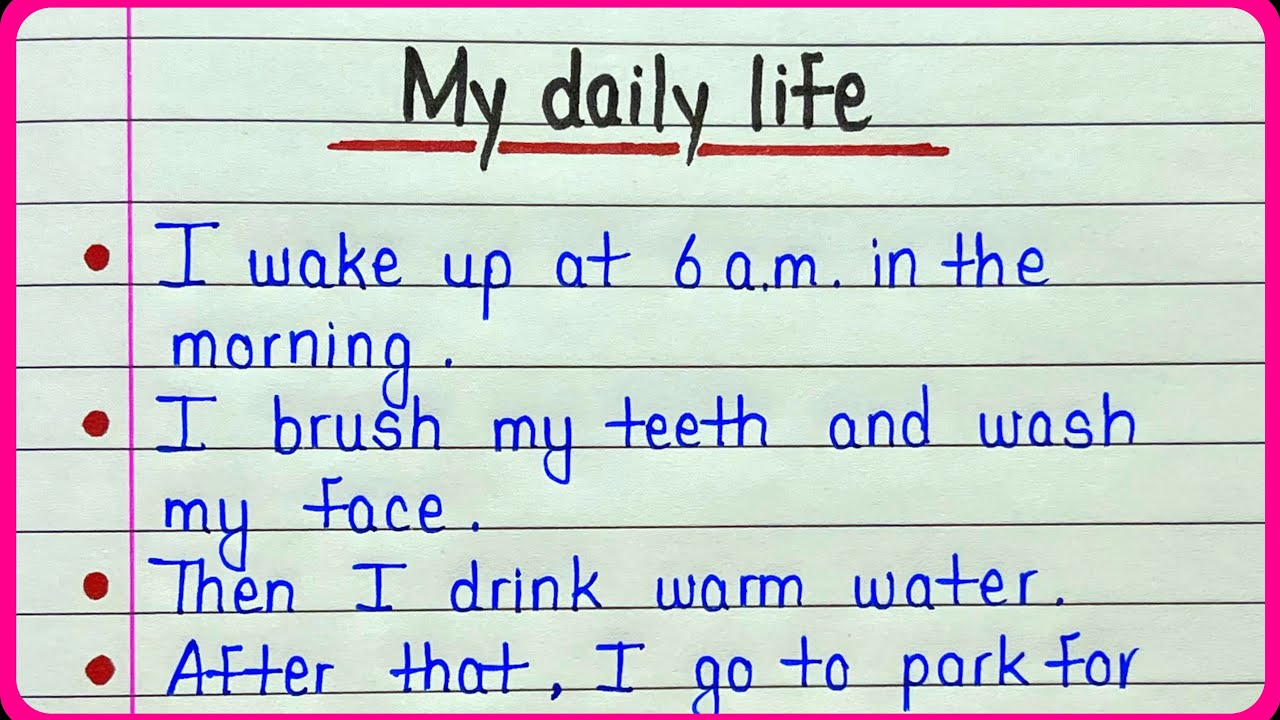 My daily life
• I wake up at 6 a.m. in the
morning.
• I brush my teeth and wash
my face.
• Then I drink warm water.
• After that, I go to park for